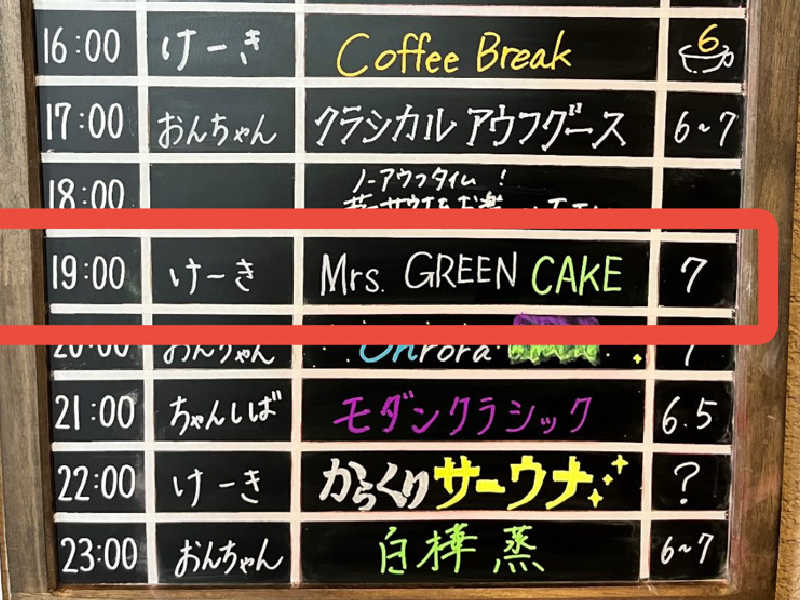 16:00 けーき Coffee Break 6
17:00 おんちゃん クラシカルアウフグース 6~7
18:00 ノーアウフタイム!
19:00 けーき Mrs. GREEN CAKE 7
20:00 おんちゃん
21:00 ちゃんしば モダンクラシック 6.5
22:00 けーき からくりサーウナ ?
23:00 おんちゃん 白樺蒸 6~7